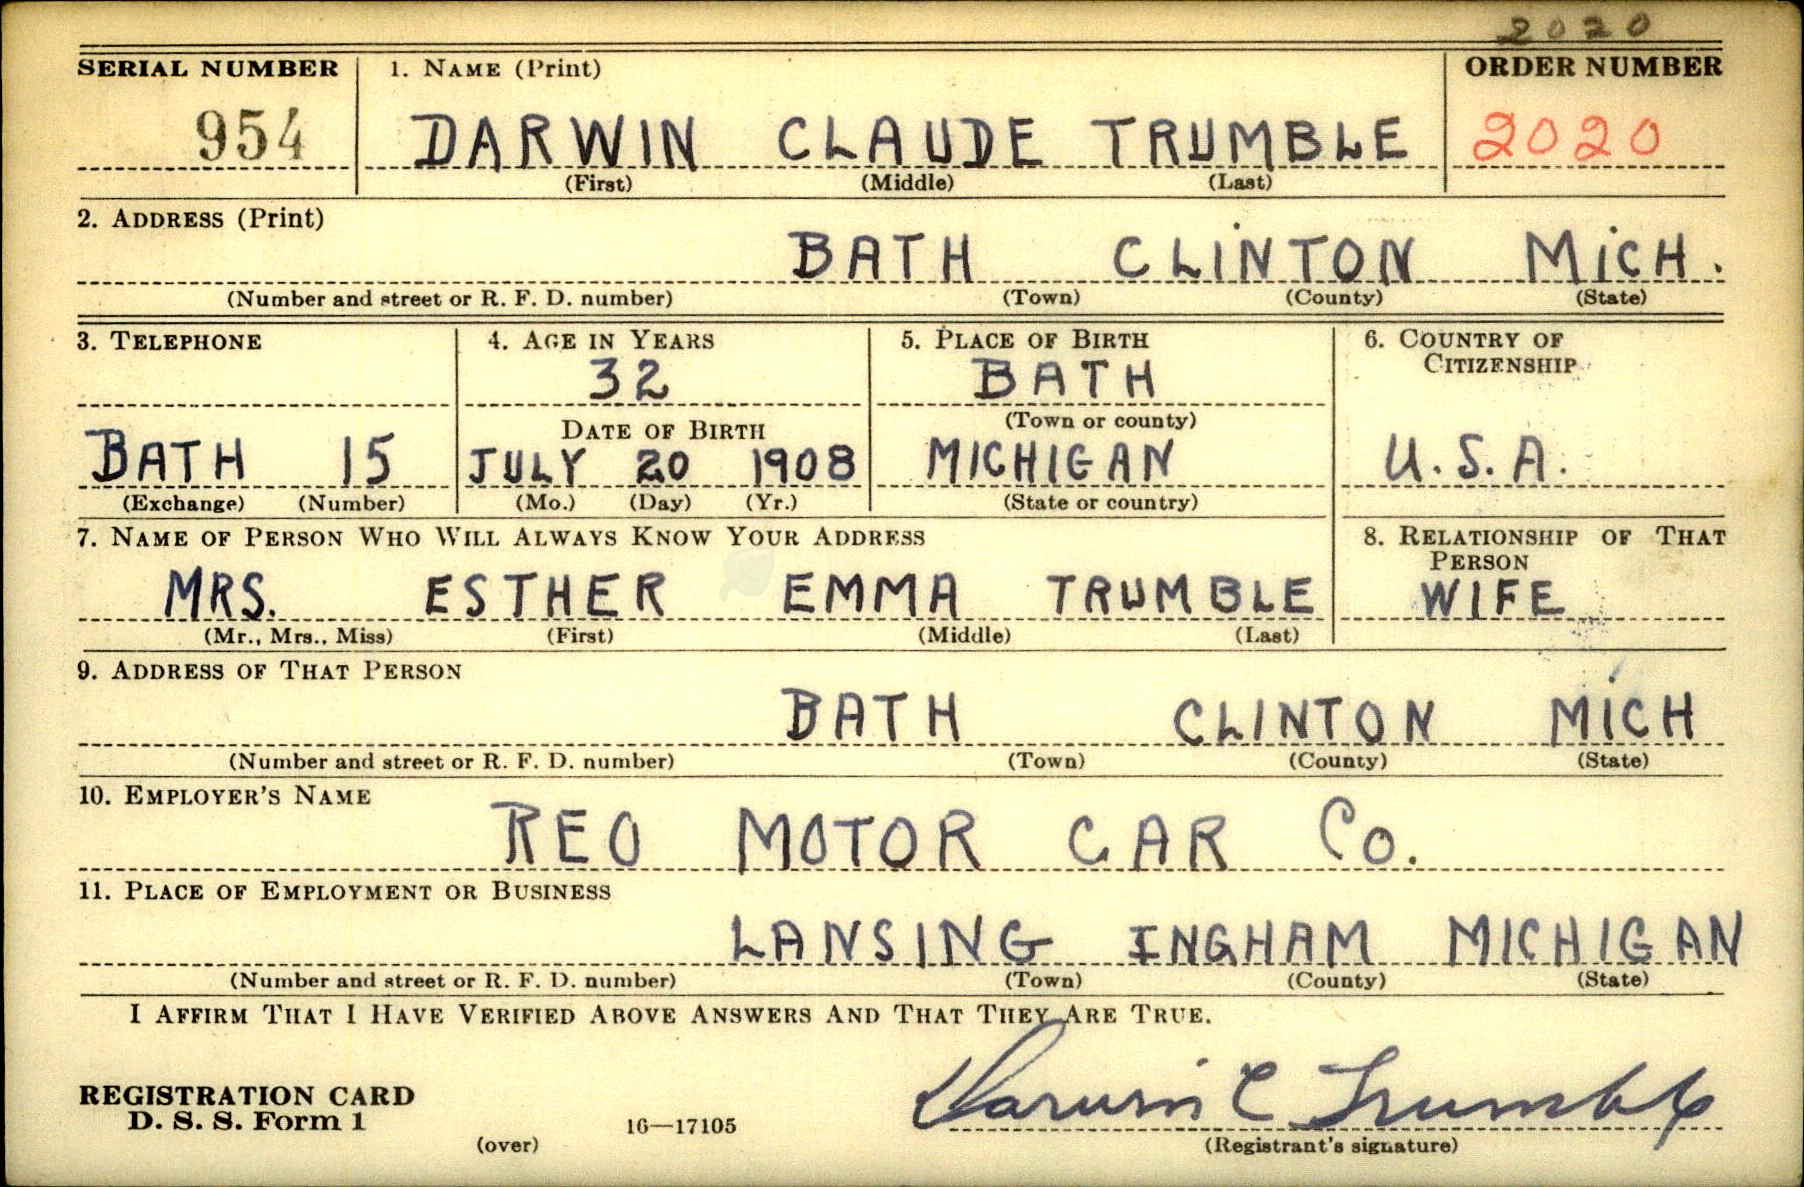 2020
SERIAL NUMBER 1. NAME (Print) ORDER NUMBER
954 DARWIN CLAUDE TRUMBLE 2020
(First) (Middle) (Last)
2. ADDRESS (Print)
BATH CLINTON MICH.
(Number and street or R. F. D. number) (Town) (County) (State)
3. TELEPHONE 4. AGE IN YEARS 5. PLACE OF BIRTH 6. COUNTRY OF
CITIZENSHIP
32 BATH
DATE OF BIRTH (Town or county)
BATH 15 JULY 20 1908 MICHIGAN U.S.A.
(Exchange) (Number) (Mo.) (Day) (Yr.) (State or country)
7. NAME OF PERSON WHO WILL ALWAYS KNOW YOUR ADDRESS 8. RELATIONSHIP OF THAT
PERSON
MRS. ESTHER EMMA TRUMBLE WIFE
(Mr., Mrs., Miss) (First) (Middle) (Last)
9. ADDRESS OF THAT PERSON
BATH CLINTON MICH
(Number and street or R. F. D. number) (Town) (County) (State)
10. EMPLOYER'S NAME
REO MOTOR CAR Co.
11. PLACE OF EMPLOYMENT OR BUSINESS
LANSING INGHAM MICHIGAN
(Number and street or R. F. D. number) (Town) (County) (State)
I AFFIRM THAT I HAVE VERIFIED ABOVE ANSWERS AND THAT THEY ARE TRUE.
REGISTRATION CARD
D. S. S. Form 1 16—17105 Darwin C Trumble
(over) (Registrant's signature)